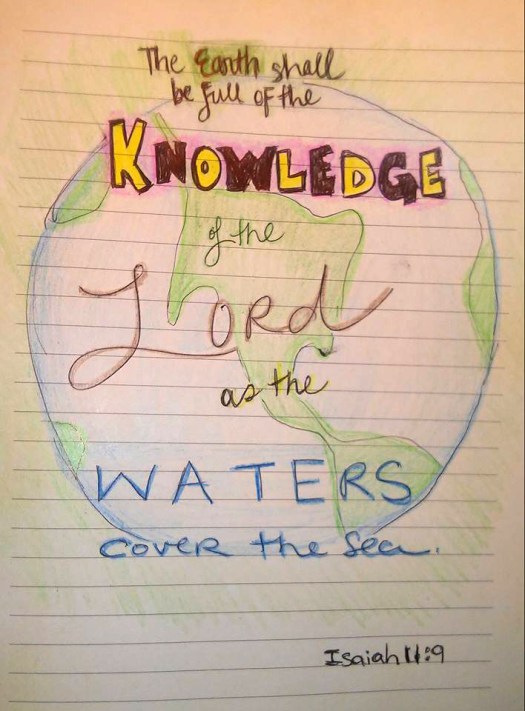 The Earth shall
be full of the
KNOWLEDGE
of the
Lord
as the
WATERS
cover the Sea.
Isaiah 11:9